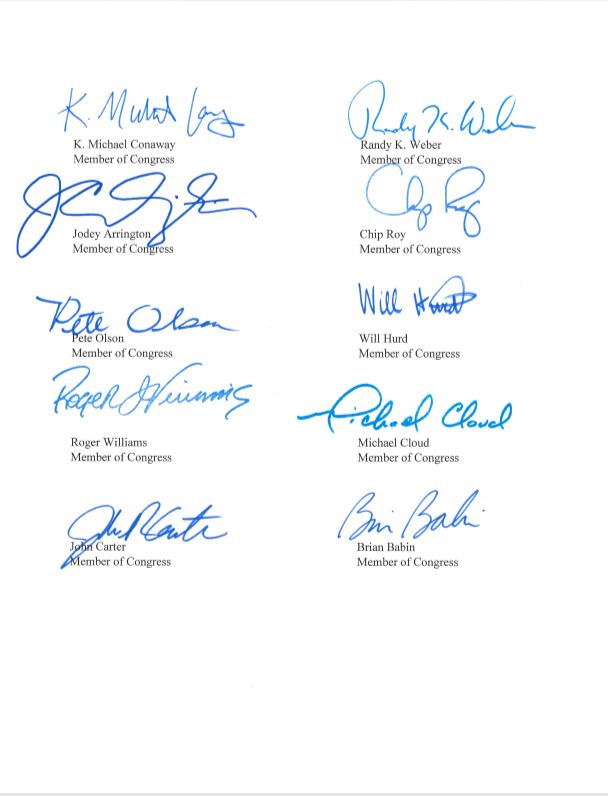 K. Michael Conaway
Member of Congress
Randy K. Weber
Randy K. Weber
Member of Congress
Jodey Arrington
Member of Congress
Chip Roy
Chip Roy
Member of Congress
Pete Olson
Pete Olson
Member of Congress
Will Hurd
Will Hurd
Member of Congress
Roger Williams
Roger Williams
Member of Congress
Michael Cloud
Michael Cloud
Member of Congress
John Carter
Member of Congress
Brian Babin
Member of Congress